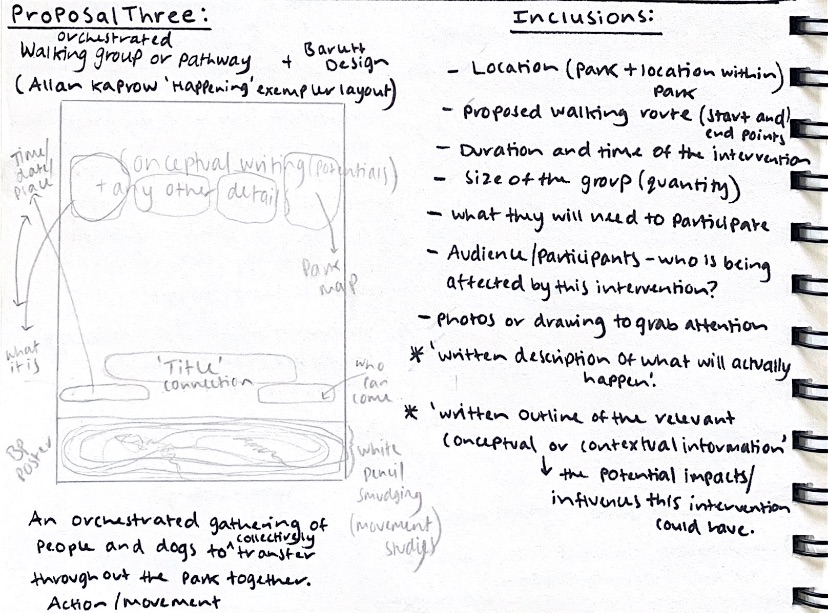 Proposal Three:
orchestrated
Walking group or pathway + Barutt Design
(Allan Kaprow 'Happening' exempler layout)
Time/
date/
place
Conceptual writing (potentials)
+ any other details
Park
map
what
it is
'Title'
connection
who
can
come
BP
poster
white
pencil
smudging
(movement
studies)
An orchestrated gathering of
people and dogs to ^collectively transfer
throughout the park together.
Action/movement
Inclusions:
- Location (park + location within)
park
- Proposed walking route (start and)
end points
- Duration and time of the intervention
- Size of the group (quantity)
- what they will need to participate
- Audience/participants - who is being
affected by this intervention?
- photos or drawing to grab attention
* 'written description of what will actually
happen'.
* 'written outline of the relevant
conceptual or contextual information'
↓ the potential impacts/
influences this intervention
could have.